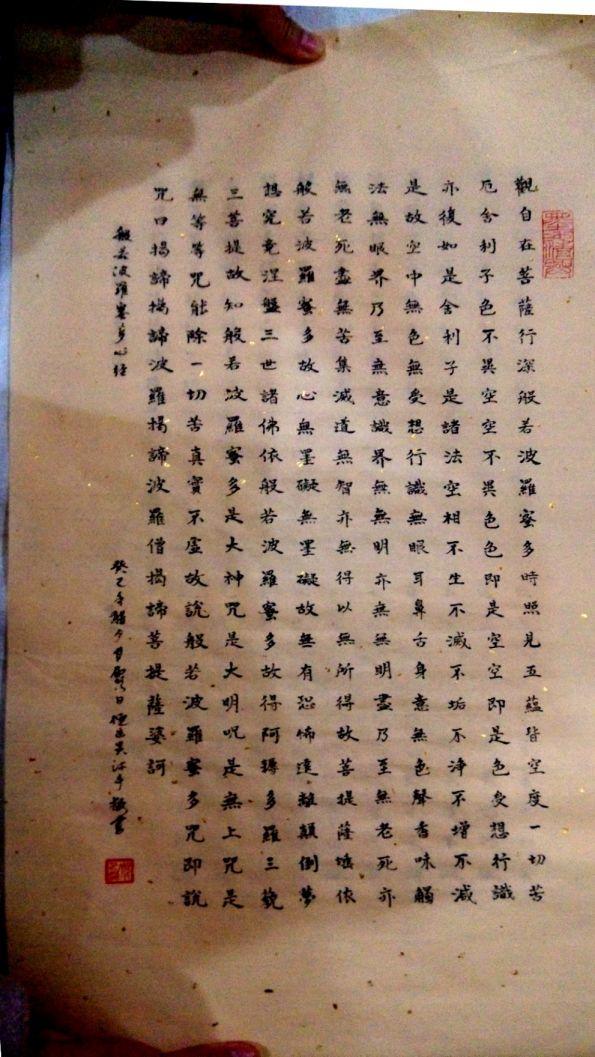 觀自在菩薩行深般若波羅蜜多時照見五蘊皆空度一切苦
厄舍利子色不異空空不異色色即是空空即是色受想行識
亦復如是舍利子是諸法空相不生不滅不垢不淨不增不減
是故空中無色無受想行識無眼耳鼻舌身意無色聲香味觸
法無眼界乃至無意識界無無明亦無無明盡乃至無老死亦
無老死盡無苦集滅道無智亦無得以無所得故菩提薩埵依
般若波羅蜜多故心無罣礙無罣礙故無有恐怖遠離顛倒夢
想究竟涅盤三世諸佛依般若波羅蜜多故得阿耨多羅三藐
三菩提故知般若波羅蜜多是大神咒是大明咒是無上咒是
無等等咒能除一切苦真實不虛故說般若波羅蜜多咒即說
咒曰揭諦揭諦波羅揭諦波羅僧揭諦菩提薩婆訶
般若波羅蜜多心經
癸巳年 書